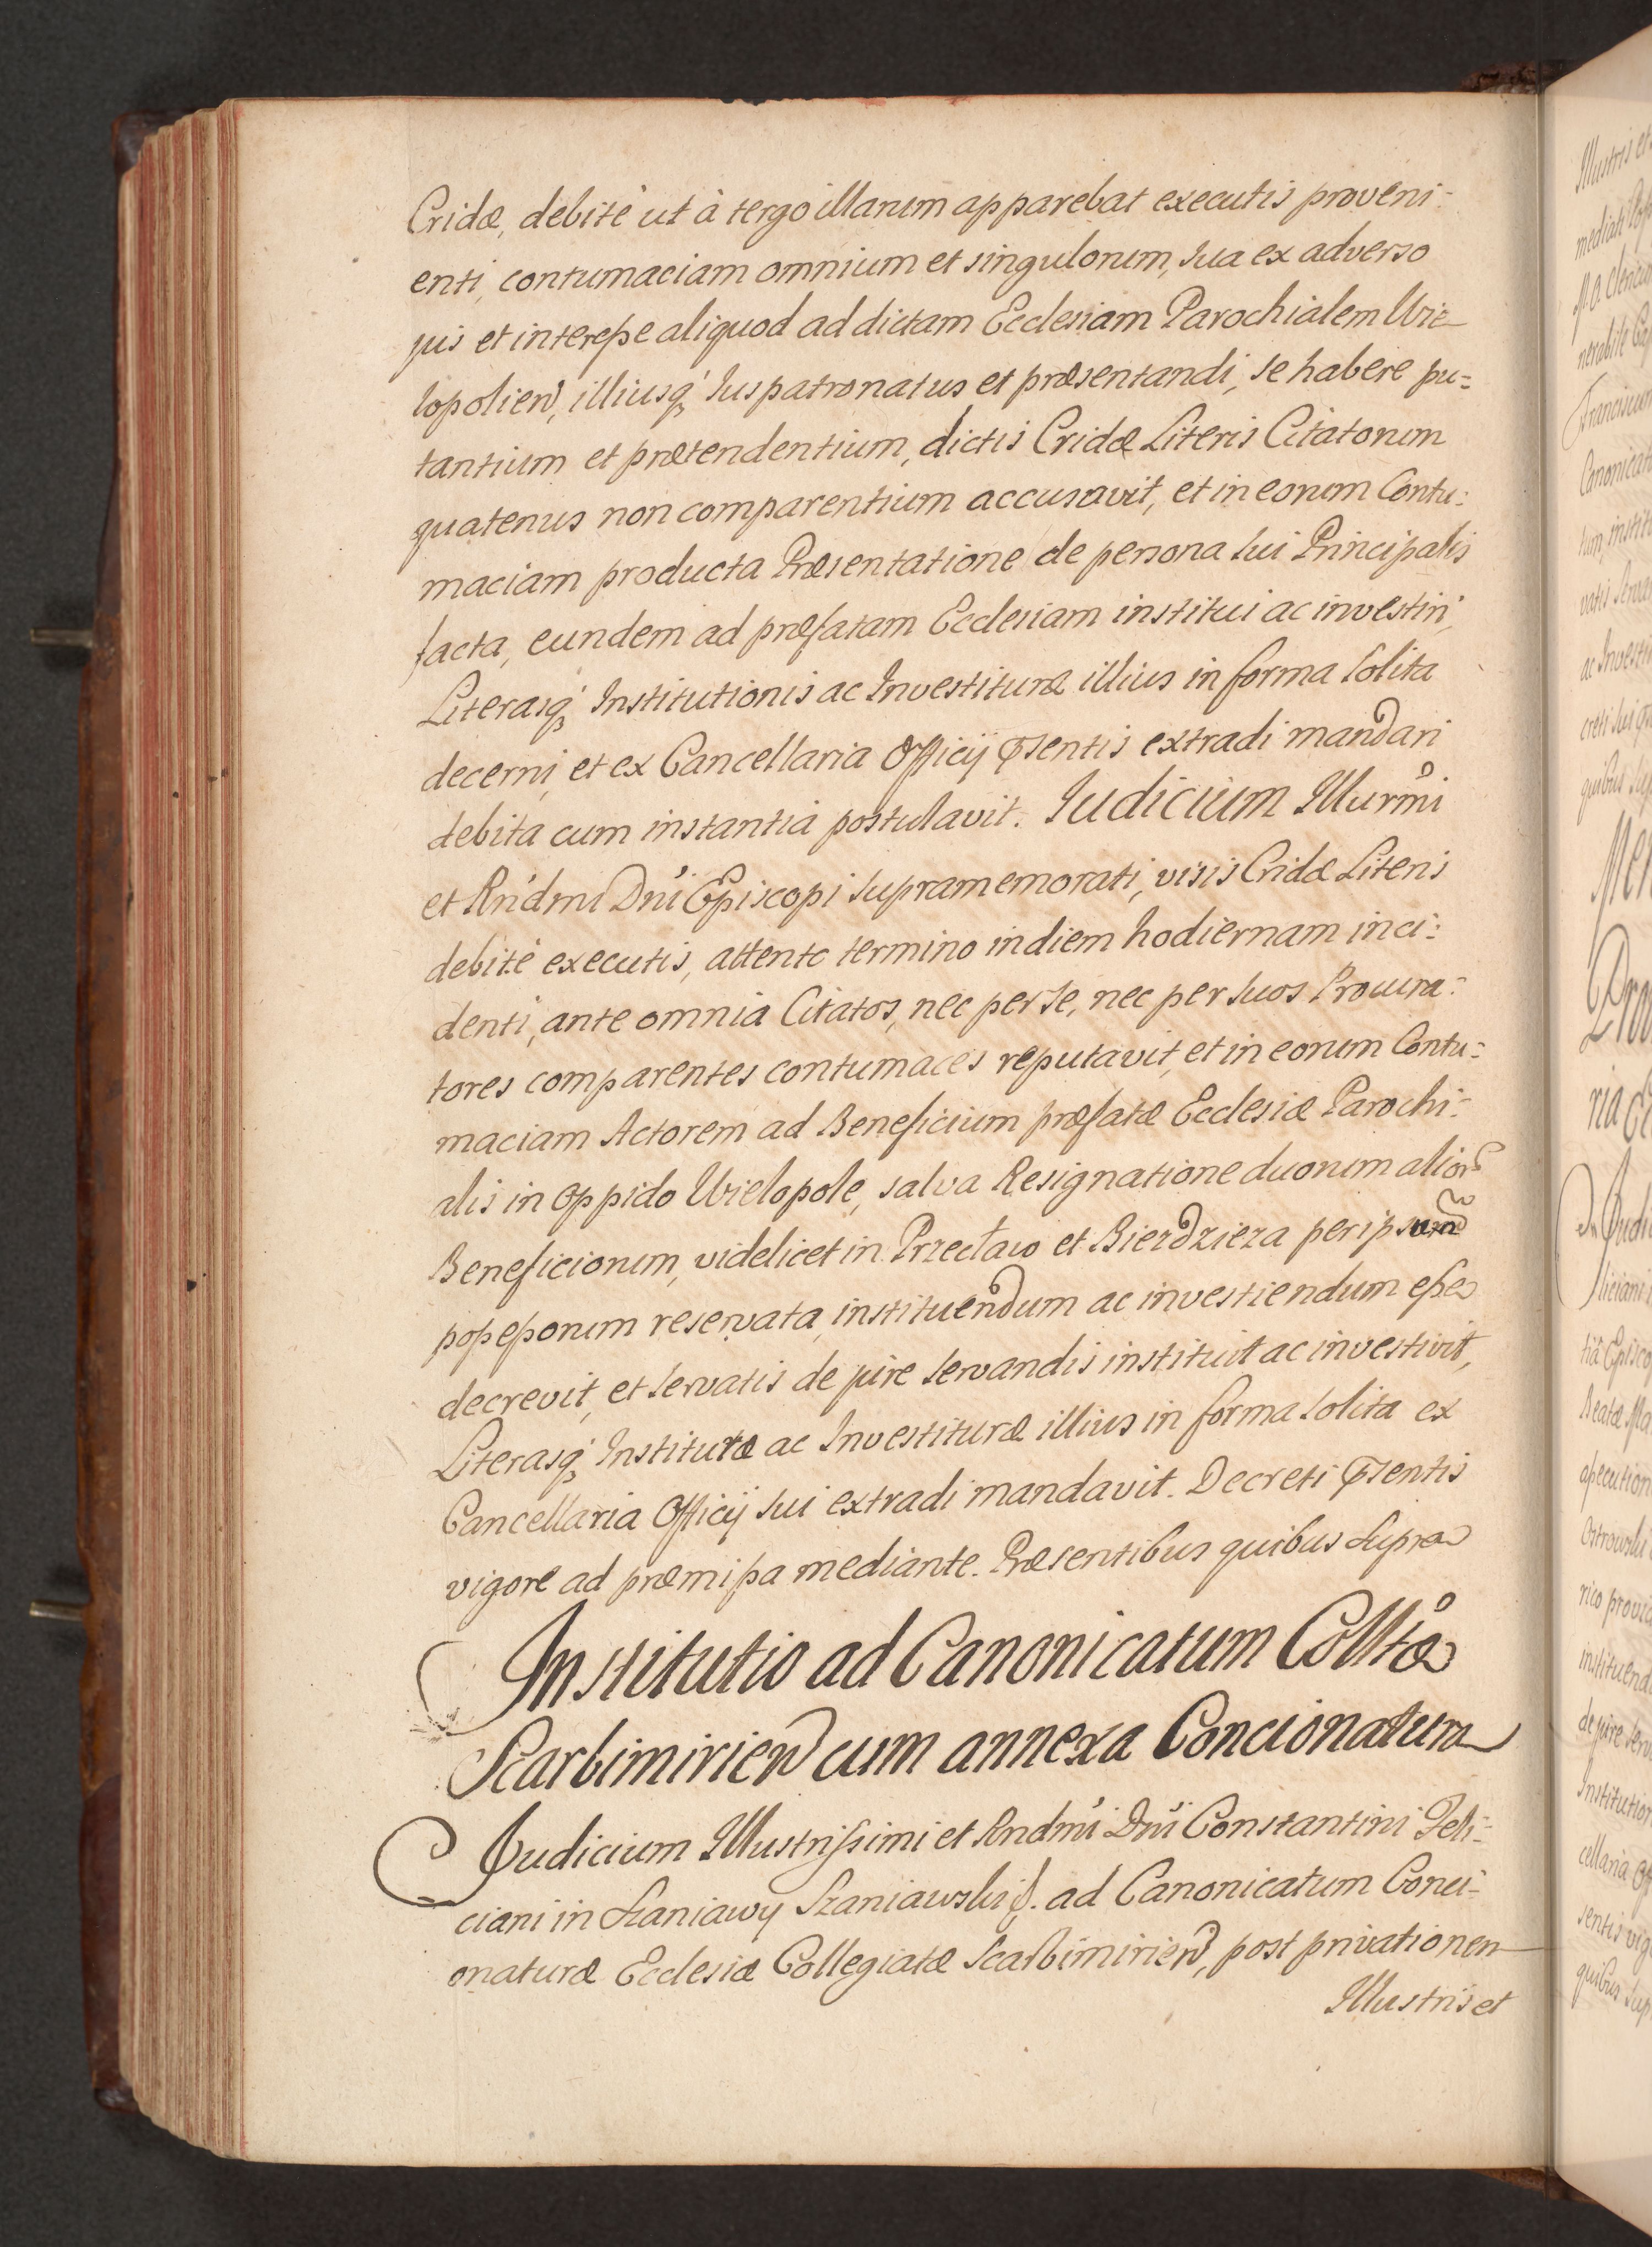 Cridæ, debitè ut à tergo illarum apparebat executis proveni-
enti, contumaciam omnium et singulorum, sua ex adverso
jus et interesse aliquod ad dictam Ecclesiam Parochialem Wie-
lopolien, illiusq Juspatronatus et præsentandi, se habere pu-
tantium et prætendentium, dictis Cridæ Literis Citatorum
quatenus non comparentium accusavit, et in eorum Contu-
maciam producta Præsentatione de persona sui Principalis
facta, eundem ad præfatam Ecclesiam institui ac investiri,
Literasq Institutionis ac Investituræ illius in forma solita
decerni, et ex Cancellaria Officij pñsentis extradi mandari
debita cum instantia postulavit. Judicium Illurmi
et Rndmi Dni Episcopi supramemorati, visis Cridæ Literis
debitè executis, attento termino in diem hodiernam inci-
denti, ante omnia Citatos, nec per se, nec per suos Procura-
tores comparentes contumaces reputavit, et in eorum Contu-
maciam Actorem ad Beneficium præfatæ Ecclesiæ Parochi-
alis in Oppido Wielopole, salva Resignatione duorum alior
Beneficiorum, videlicet in Przecław et Bierdzieza per ipsum
possessorum reservata, instituendum ac investiendum esse
decrevit, et servatis de jure servandis instituit ac investivit,
Literasq Institutæ ac Investituræ illius in forma solita ex
Cancellaria Officij sui extradi mandavit. Decreti pñsentis
vigore ad præmissa mediante. Præsentibus quibus supra
Institutio ad Canonicatum Colltæ
Scarbimirien cum annexa Concionatura
Judicium Illustrissimi et Rndmi Dni Constantini Feli-
ciani in Szaniawy Szaniawski p. ad Canonicatum Conci-
onaturæ Ecclesiæ Collegiatæ Scarbimirien, post privationem
Illustris et
Illustris et